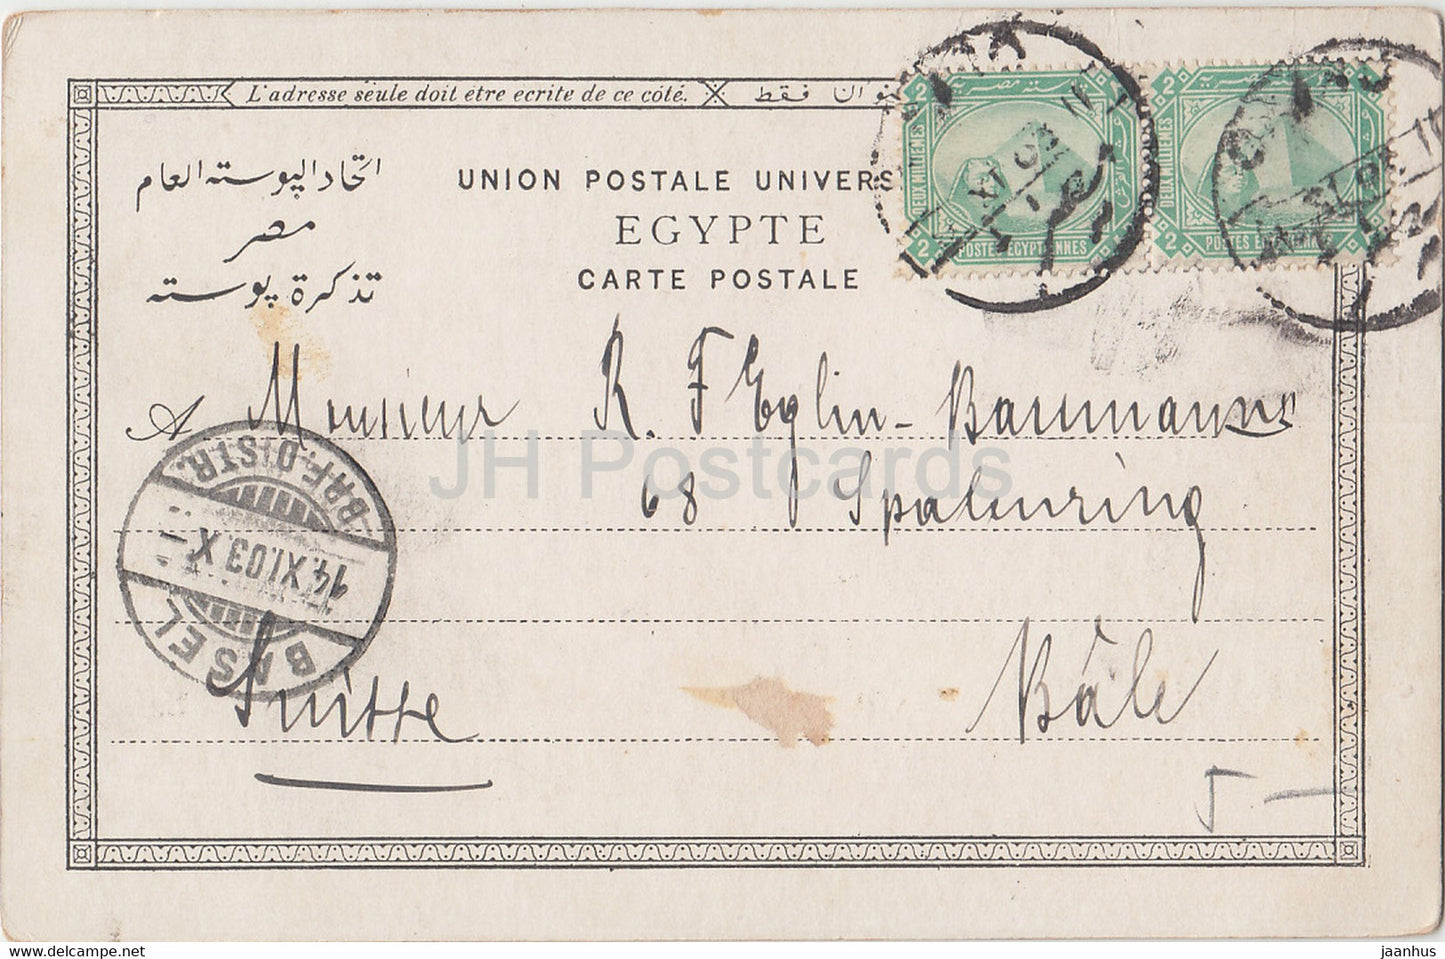 L'adresse seule doit être ecrite de ce côté.
فقط
اتحاد البوسته العام
مصر
تذكرة بوسته
UNION POSTALE UNIVERS
EGYPTE
CARTE POSTALE
2 2
DEUX MILLIEMES
POSTES EGYPTIENNES
2 2
2 2
DEUX MILLIEMES
POSTES E
2
A Monsieur R. F Eglin-Baumann
68 Spalenring
Bâle
Suisse
BASEL
14.XI.03.X
BRF.DISTR.
5 –
JH Postcards
jaanhus